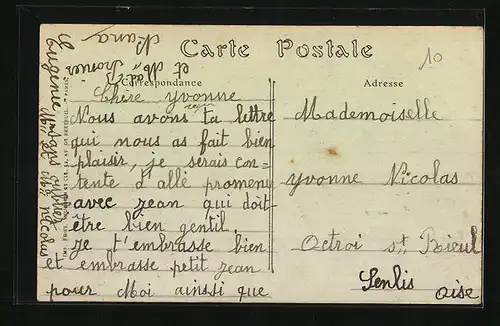 Carte Postale
10
Correspondance
Adresse
Chère yvonne
Nous avons reçu ta lettre
qui nous as fait bien
plaisir, je serais con-
tente d'allé promener
avec jean qui doit
être bien gentil.
je t'embrasse bien
et embrasse petit jean
pour Moi ainssi que
et Mr
Mr et Me Nicolas
Eugénie
Mademoiselle
yvonne Nicolas
Octroi st Rieul
Senlis
oise